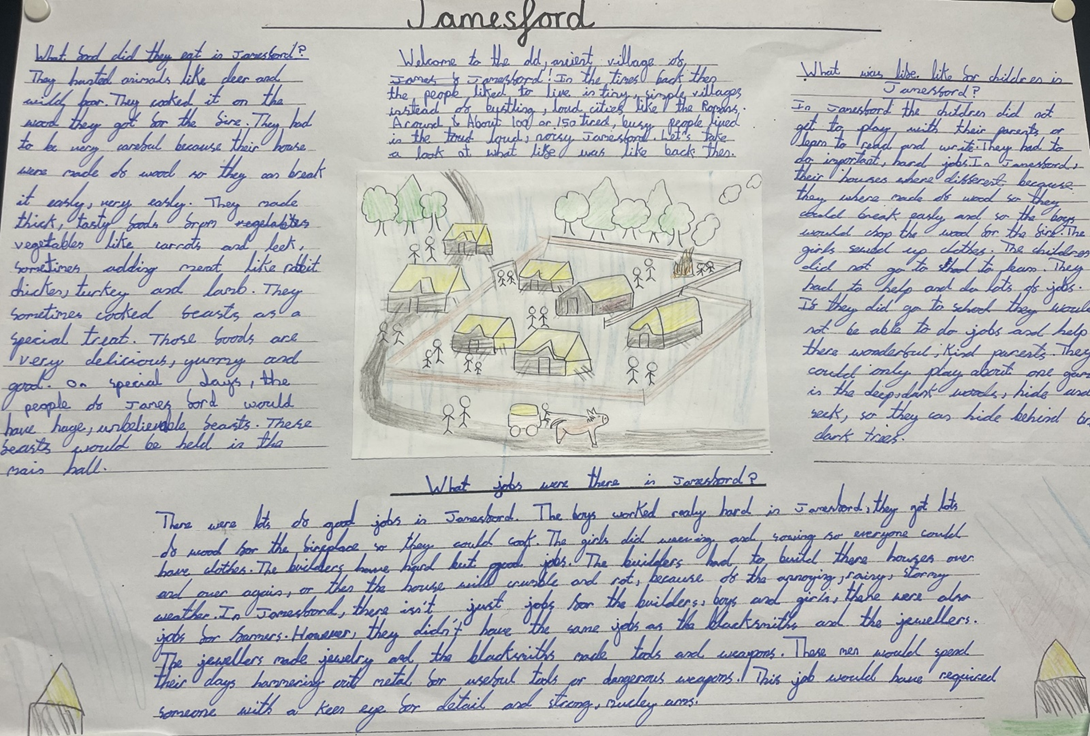 Jamesford
What food did they eat in Jamesford?
They hunted animals like deer and
wild boar. They cooked it on the
wood they got for the fire. They had
to be very careful because their house
were made of wood so they can break
it easily, very easily. They made
thick, tasty foods from
vegetables like carrots and leek,
sometimes adding meat like rabbit
chicken, turkey and lamb. They
sometimes cooked feasts as a
special treat. Those foods are
very delicious, yummy and
good. On special days, the
people of James ford would
have huge, unbelievable feasts. These
feasts would be held in the
main hall.
Welcome to the old, ancient village of,
Jamesford! In the times back then
the people liked to live in tiny, simple villages
instead of bustling, loud cities like the Romans.
Around About 100 or 150 tired, busy people lived
in the loud, noisy Jamesford. Let's take
a look at what life was like back then.
What was life like for children in
Jamesford?
In Jamesford the children did not
get to play with their parents or
learn to read and write. They had to
do important, hard jobs. In Jamesford,
their houses where different because
they where made of wood so they
could break easily and so the boys
would chop the wood for the fire. The
girls sewed up clothes. The children
did not go to school to learn. They
had to help and do lots of jobs.
If they did go to school they would
not be able to do jobs and help
there wonderful, kind parents. They
could only play about one game
in the deep, dark woods, hide and
seek, so they can hide behind
dark trees.
What jobs were there in Jamesford?
There were lots of good jobs in Jamesford. The boys worked really hard in Jamesford, they got lots
of wood for the fireplace so they could cook. The girls did weaving and sowing so everyone could
have clothes. The builders have hard but good jobs. The builders had to build there houses over
and over again, or then the house will crumble and rot, because of the annoying, rainy, stormy
weather. In Jamesford, there isn't just jobs for the builders, boys and girls, there were also
jobs for farmers. However, they didn't have the same jobs as the blacksmiths and the jewellers.
The jewellers made jewelry and the blacksmiths made tools and weapons. These men would spend
their days hammering out metal for useful tools or dangerous weapons! This job would have required
someone with a keen eye for detail and strong, arms.